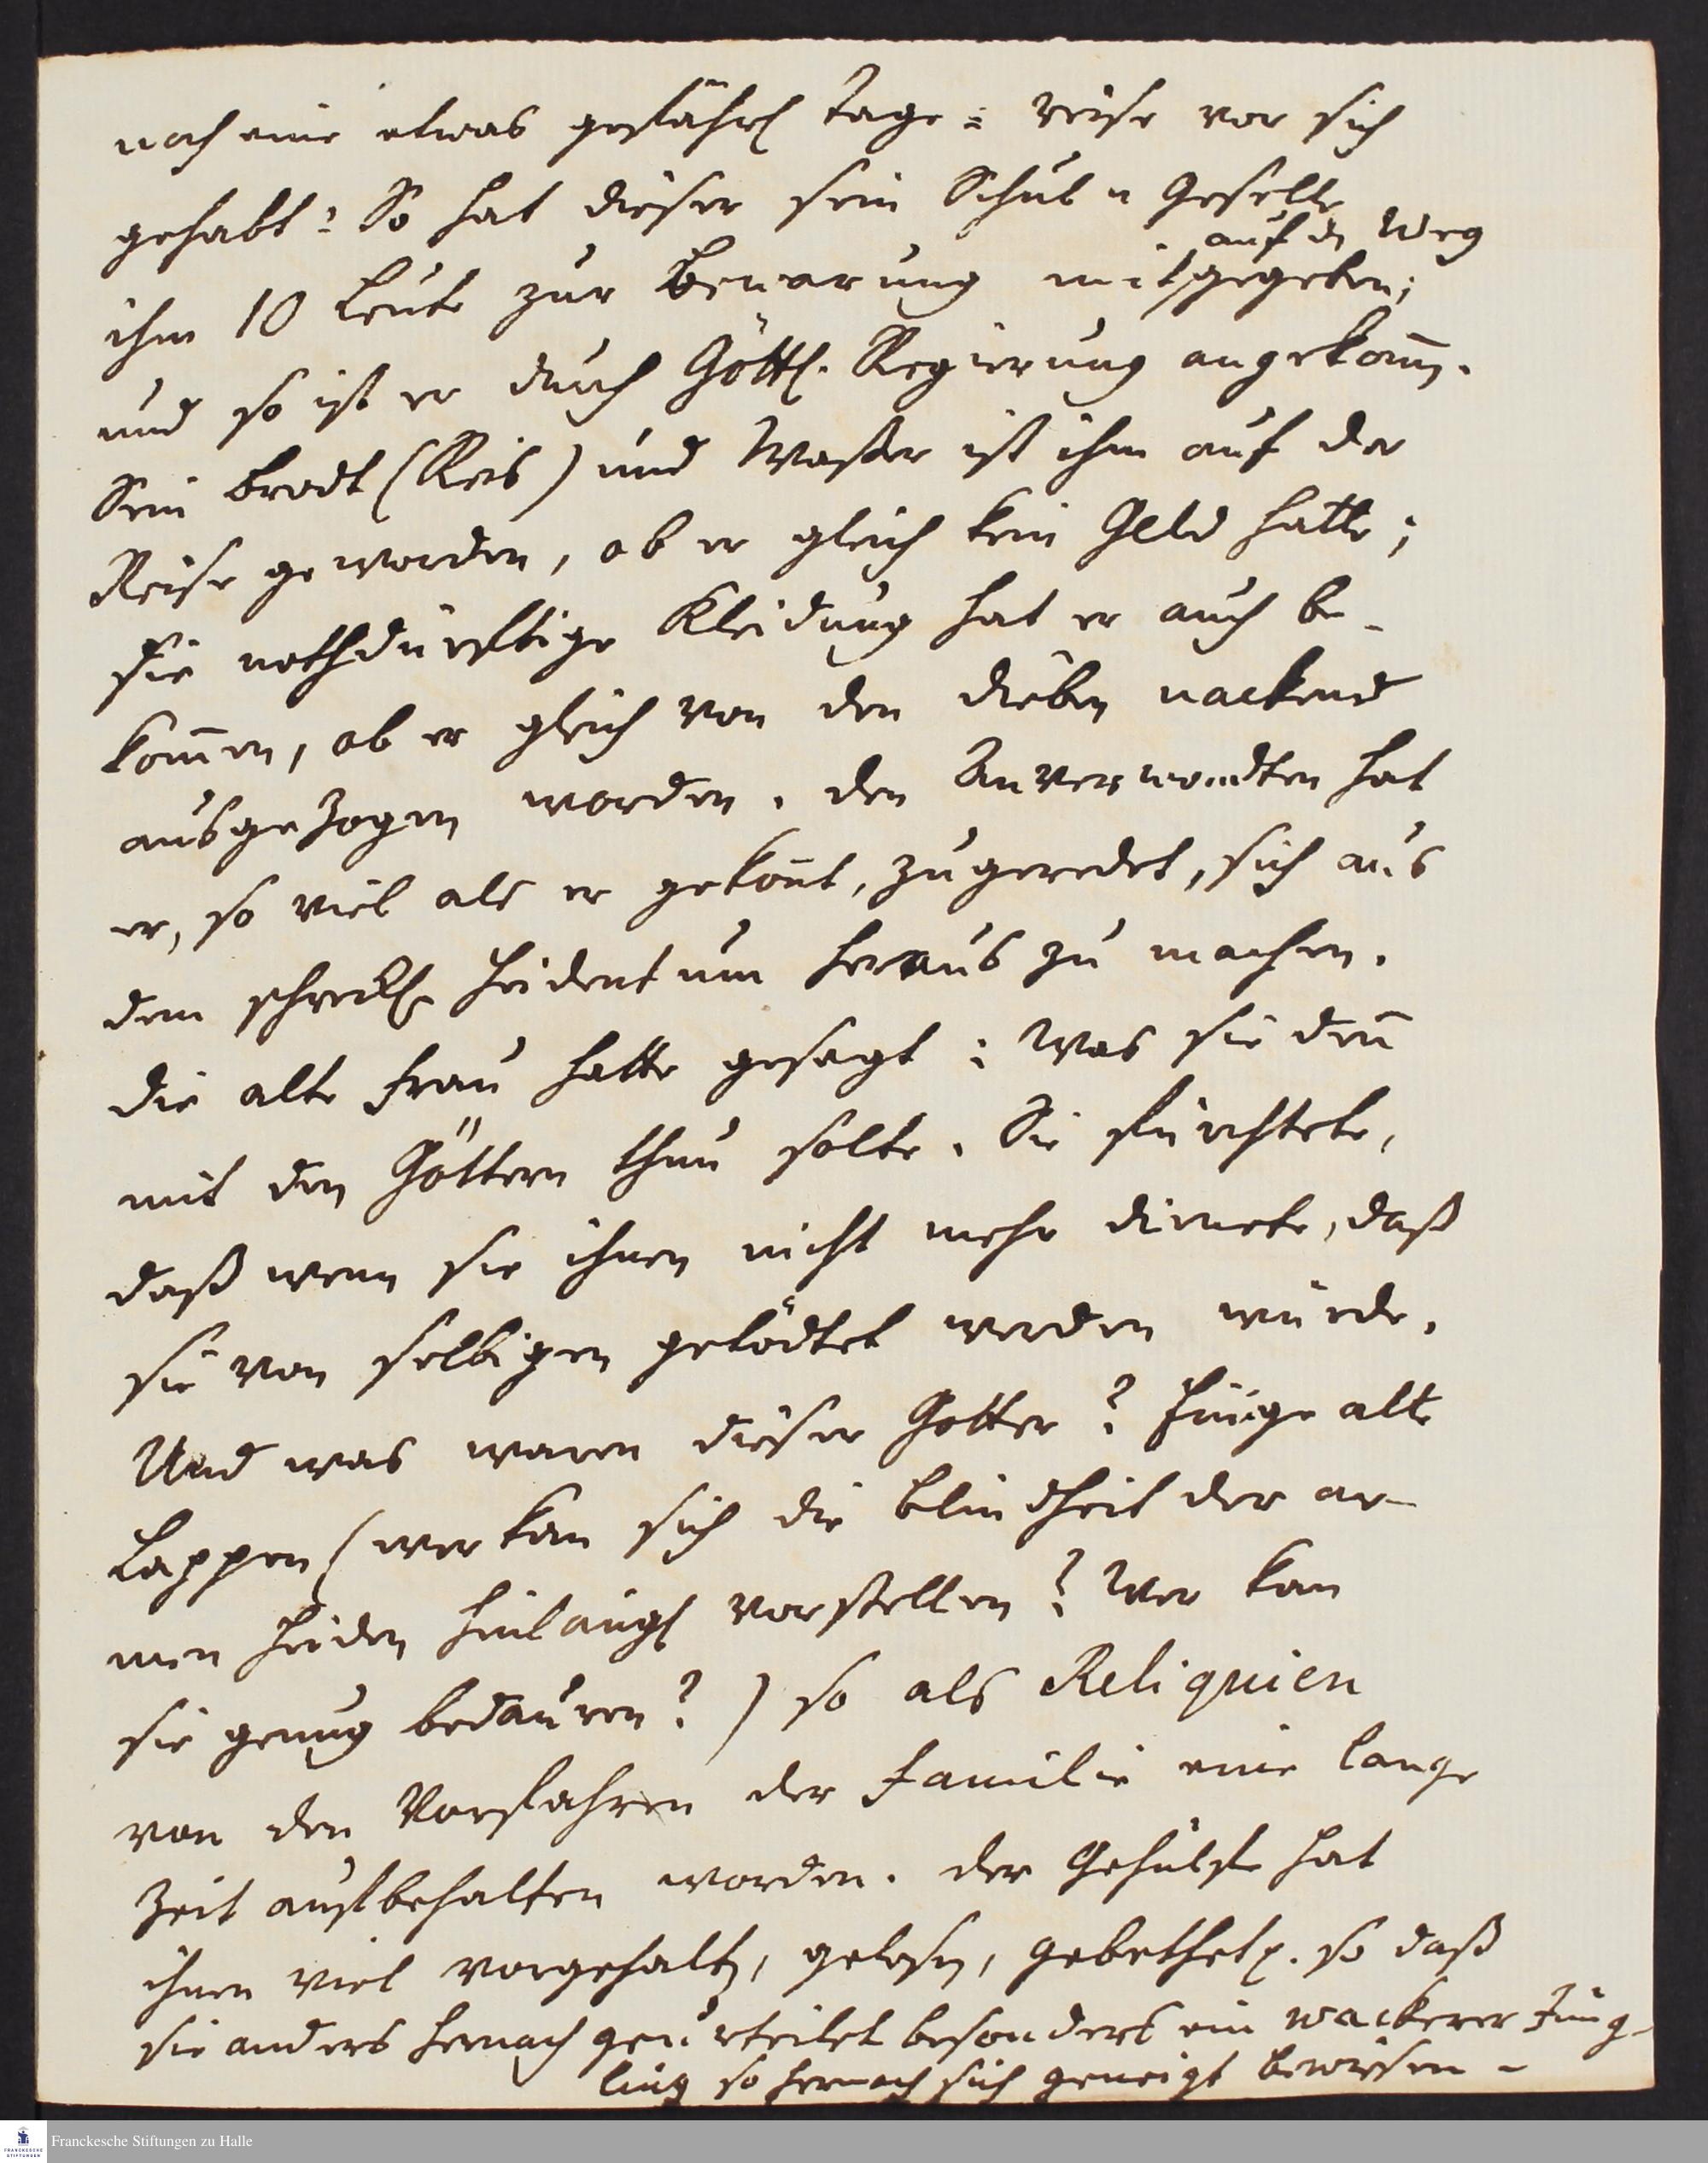 noch eine etwas gefährl Tage = reise vor sich
gehabt: So hat dieser sein Schul u Geselle
auf dn Weg
ihm 10 Leute zur Bewarung mitgegeben;
und so ist er durch Göttl. Regierung angekom̄en.
Sein Brodt (Reis) und Waßer ist ihm auf der
Reise geworden, ob er gleich kein Geld hatte;
die nothdürftige Kleidung hat er auch be-
kom̄en, ob er gleich von den Dieben nackend
ausgezogen worden. Den Anverwandten hat
er, so viel als er gekon̄t, zugeredet, sich aus
dem schreckl. Heidentum heraus zu machen.
Die alte Frau hatte gesagt: Was sie den̄
mit den Göttern thun solte. Sie fürchtete,
daß wenn sie ihnen nicht mehr dienete, daß
sie von selbigen getödtet werden würde.
Und was waren dieser Götter? Einige alte
Lappen (wer kan sich die Blindheit der ar-
men Heiden hinlängl vorstellen? Wer kan
sie genug bedauren?) so als Reliquien
von den Vorfahren der Familie eine lange
Zeit aufbehalten worden. Der Gehülfe hat
ihnen viel vorgehalten, gelesen, gebethet p. so daß
sie anders hernach geurteilet besonders ein wackerer Jüng-
ling so hernach sich geneigt bewiesen -
Franckesche Stiftungen zu Halle